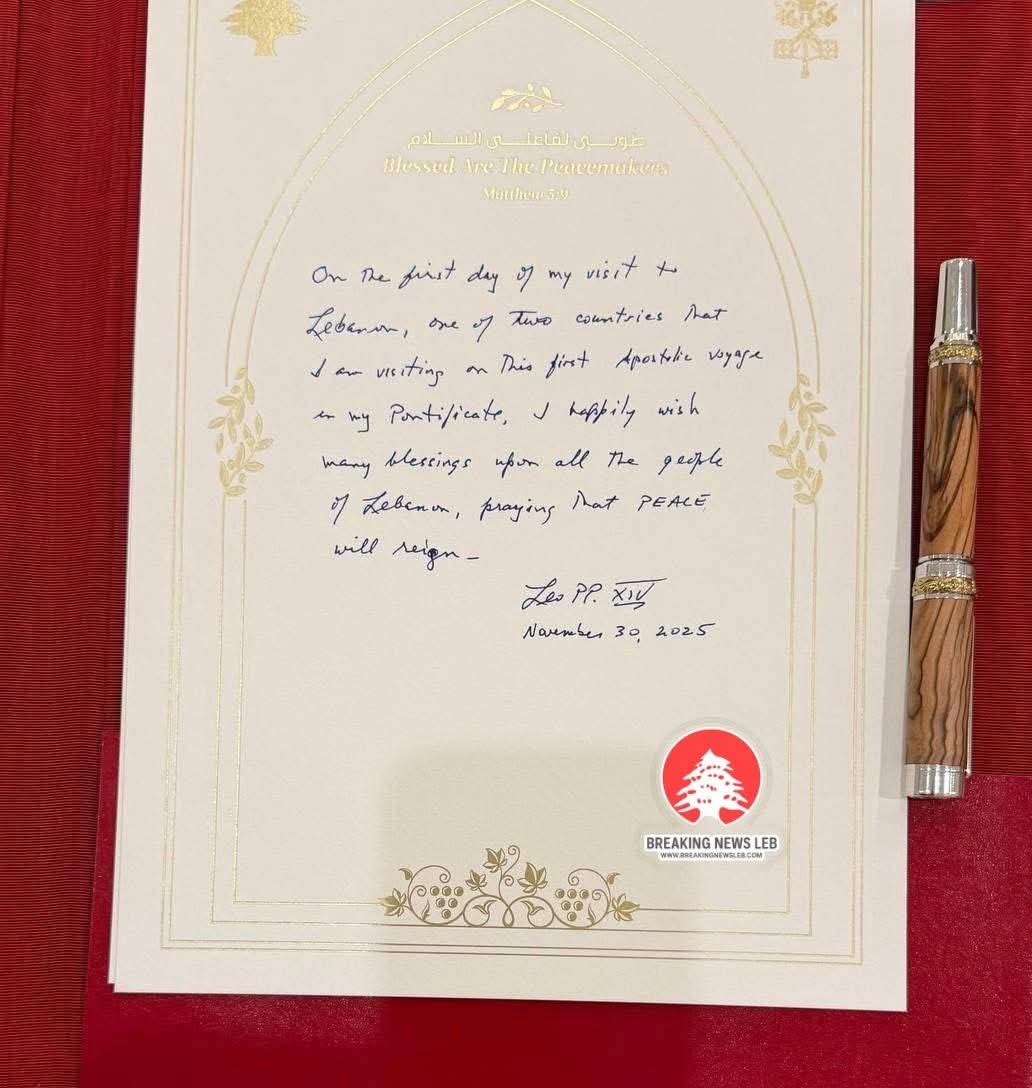 طوبى لفاعلي السلام
Blessed Are The Peacemakers
Matthew 5:9
On the first day of my visit to
Lebanon, one of two countries that
I am visiting on this first Apostolic voyage
in my Pontificate, I happily wish
many blessings upon all the people
of Lebanon, praying that PEACE
will reign –
Leo PP. XIV
November 30, 2025
BREAKING NEWS LEB
WWW.BREAKINGNEWSLEB.COM